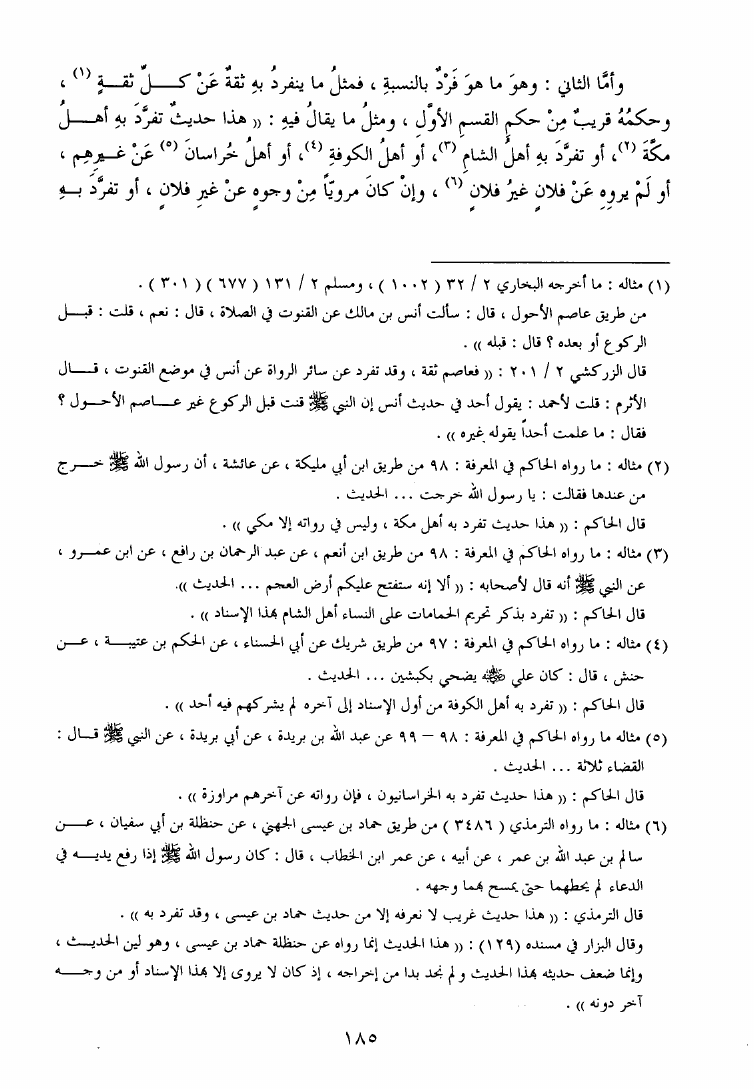 وأمَّا الثاني : وهوَ ما هوَ فَرْدٌ بالنسبةِ ، فمثلُ ما ينفردُ بهِ ثقةٌ عَنْ كــلِّ ثقــةٍ (١) ،
وحكمُهُ قريبٌ مِنْ حكمِ القسمِ الأوَّلِ ، ومثلُ ما يقالُ فيهِ : (( هذا حديثٌ تفرَّدَ بهِ أهــلُ
مكَّةَ (٢)، أو تفرَّدَ بهِ أهلُ الشامِ (٣)، أو أهلُ الكوفةِ (٤)، أو أهلُ خُراسانَ (٥) عَنْ غــيرِهِم ،
أو لَمْ يروِهِ عَنْ فلانٍ غيرُ فلانٍ (٦) ، وإنْ كانَ مرويّاً مِنْ وجوهٍ عنْ غيرِ فلانٍ ، أو تفرَّدَ بــهِ
(١) مثاله : ما أخرجه البخاري ٢ / ٣٢ ( ١٠٠٢ ) ، ومسلم ٢ / ١٣١ ( ٦٧٧ ) ( ٣٠١ ) .
من طريق عاصم الأحول ، قال : سألت أنس بن مالك عن القنوت في الصلاة ، قال : نعم ، قلت : قبــل
الركوع أو بعده ؟ قال : قبله )) .
قال الزركشي ٢ / ٢٠١ : (( فعاصم ثقة ، وقد تفرد عن سائر الرواة عن أنس في موضع القنوت ، قــال
الأثرم : قلت لأحمد : يقول أحد في حديث أنس إن النبي ﷺ قنت قبل الركوع غير عــاصم الأحــول ؟
فقال : ما علمت أحداً يقوله غيره )) .
(٢) مثاله : ما رواه الحاكم في المعرفة : ٩٨ من طريق ابن أبي مليكة ، عن عائشة ، أن رسول الله ﷺ خــرج
من عندها فقالت : يا رسول الله خرجت ... الحديث .
قال الحاكم : (( هذا حديث تفرد به أهل مكة ، وليس في رواته إلا مكي )) .
(٣) مثاله : ما رواه الحاكم في المعرفة : ٩٨ من طريق ابن أنعم ، عن عبد الرحمان بن رافع ، عن ابن عمــرو ،
عن النبي ﷺ أنه قال لأصحابه : (( ألا إنه ستفتح عليكم أرض العجم ... الحديث )).
قال الحاكم : (( تفرد بذكر تحريم الحمامات على النساء أهل الشام بهذا الإسناد )) .
(٤) مثاله : ما رواه الحاكم في المعرفة : ٩٧ من طريق شريك عن أبي الحسناء ، عن الحكم بن عتيبــة ، عــن
حنش ، قال : كان علي ﷺ يضحي بكبشين ... الحديث .
قال الحاكم : (( تفرد به أهل الكوفة من أول الإسناد إلى آخره لم يشركهم فيه أحد )) .
(٥) مثاله ما رواه الحاكم في المعرفة : ٩٨ – ٩٩ عن عبد الله بن بريدة ، عن أبي بريدة ، عن النبي ﷺ قــال :
القضاء ثلاثة ... الحديث .
قال الحاكم : (( هذا حديث تفرد به الخراسانيون ، فإن رواته عن آخرهم مراوزة )) .
(٦) مثاله : ما رواه الترمذي ( ٣٤٨٦ ) من طريق حماد بن عيسى الجهني ، عن حنظلة بن أبي سفيان ، عــن
سالم بن عبد الله بن عمر ، عن أبيه ، عن عمر ابن الخطاب ، قال : كان رسول الله ﷺ إذا رفع يديــه في
الدعاء لم يحطهما حتى يمسح بهما وجهه .
قال الترمذي : (( هذا حديث غريب لا نعرفه إلا من حديث حماد بن عيسى ، وقد تفرد به )) .
وقال البزار في مسنده (١٢٩) : (( هذا الحديث إنما رواه عن حنظلة حماد بن عيسى ، وهو لين الحديــث ،
وإنما ضعف حديثه بهذا الحديث و لم نجد بدا من إخراجه ، إذ كان لا يروى إلا بهذا الإسناد أو من وجــه
آخر دونه )) .
١٨٥